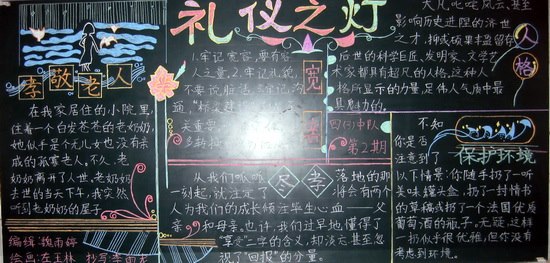 礼仪之灯
孝敬老人
在我家居住的小院里,
住着一个白发苍苍的老奶奶,
她似乎是个无儿女也没有亲
戚的孤寡老人,不久,老
奶奶离开了人世,老奶奶
去世的当天下午,我突然
听到老奶奶的屋子
编辑:魏雨婷
绘画:左玉林 抄写:李雨龙
1.牢记宽容,要有容
人之量,2.牢记礼貌,
不要说脏话
关重要
宽容
四(1)中队
第2期
大凡叱咤风云、甚至
影响历史进程的济世
之才,抑或硕果丰盈
后世的科学巨匠、发明家、文学艺
术家都具有超凡的人格,这种人
格所显示的力量,足伟人气度中最
具魅力的。
人格
尽孝
从我们呱呱落地的那
一刻起,就注定了将会有两个
人为我们的成长倾注毕生心血——父
亲和母亲。也许,我们过早地懂得了
“享受”二字的含义,却淡忘甚至忽
视了“回报”的分量。
保护环境
不知
你是否
注意到了
以下情景:你随手扔了听
美味罐头盒,扔了一封情书
的草稿或扔了一个法国优质
葡萄酒的瓶子。无疑,这样
一扔似乎很优雅,但你没有
考虑到环境。